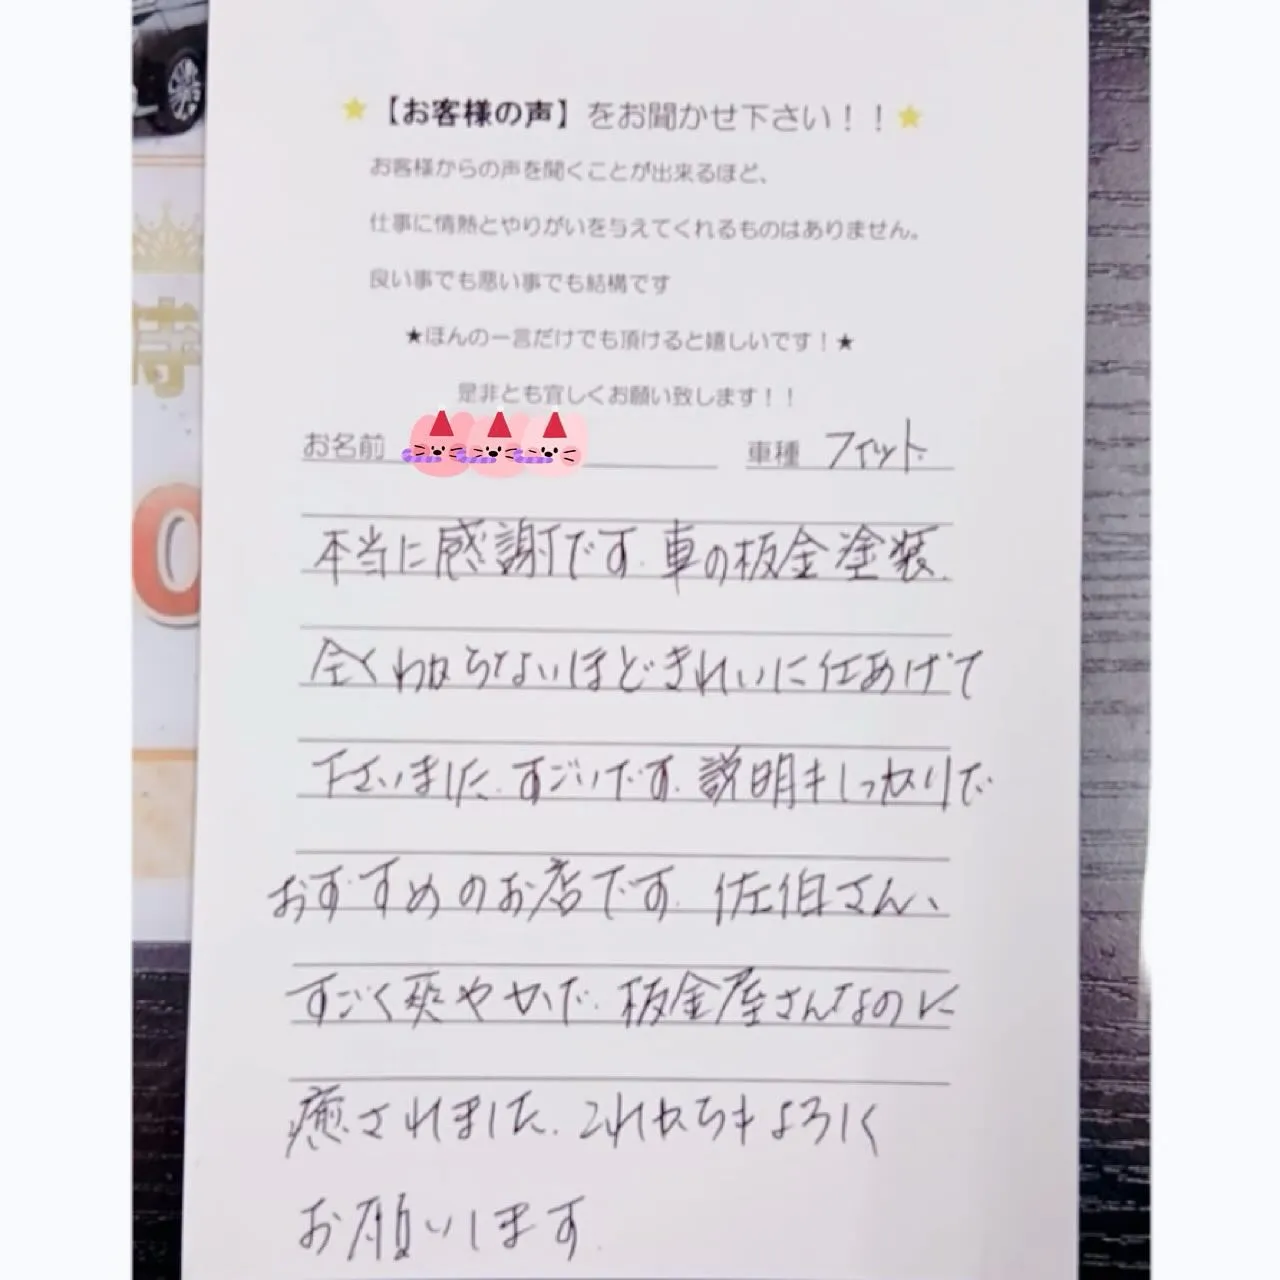 ★【お客様の声】をお聞かせ下さい！！★
お客様からの声を聞くことが出来るほど、
仕事に情熱とやりがいを与えてくれるものはありません。
良い事でも悪い事でも結構です
★ほんの一言だけでも頂けると嬉しいです！★
是非とも宜しくお願い致します！！
お名前 車種 フィット
本当に感謝です. 車の板金塗装.
全くわからないほどきれいに仕あげて
下さいました. すごいです. 説明もしっかりで
おすすめのお店です. 佐伯さん、
すごく爽やかで. 板金屋さんなのに
癒されました. これからもよろしく
お願いします.
待
0